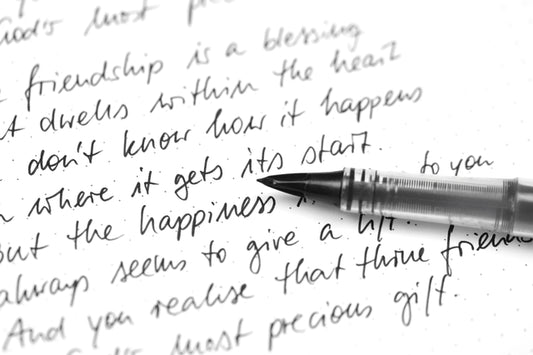 God's most pre
friendship is a blessing
t dwells within the heart
don't know how it happens
where it gets its start.
to you
but the happiness
always seems to give a lift.
And you realise that thine frien
most precious gift.